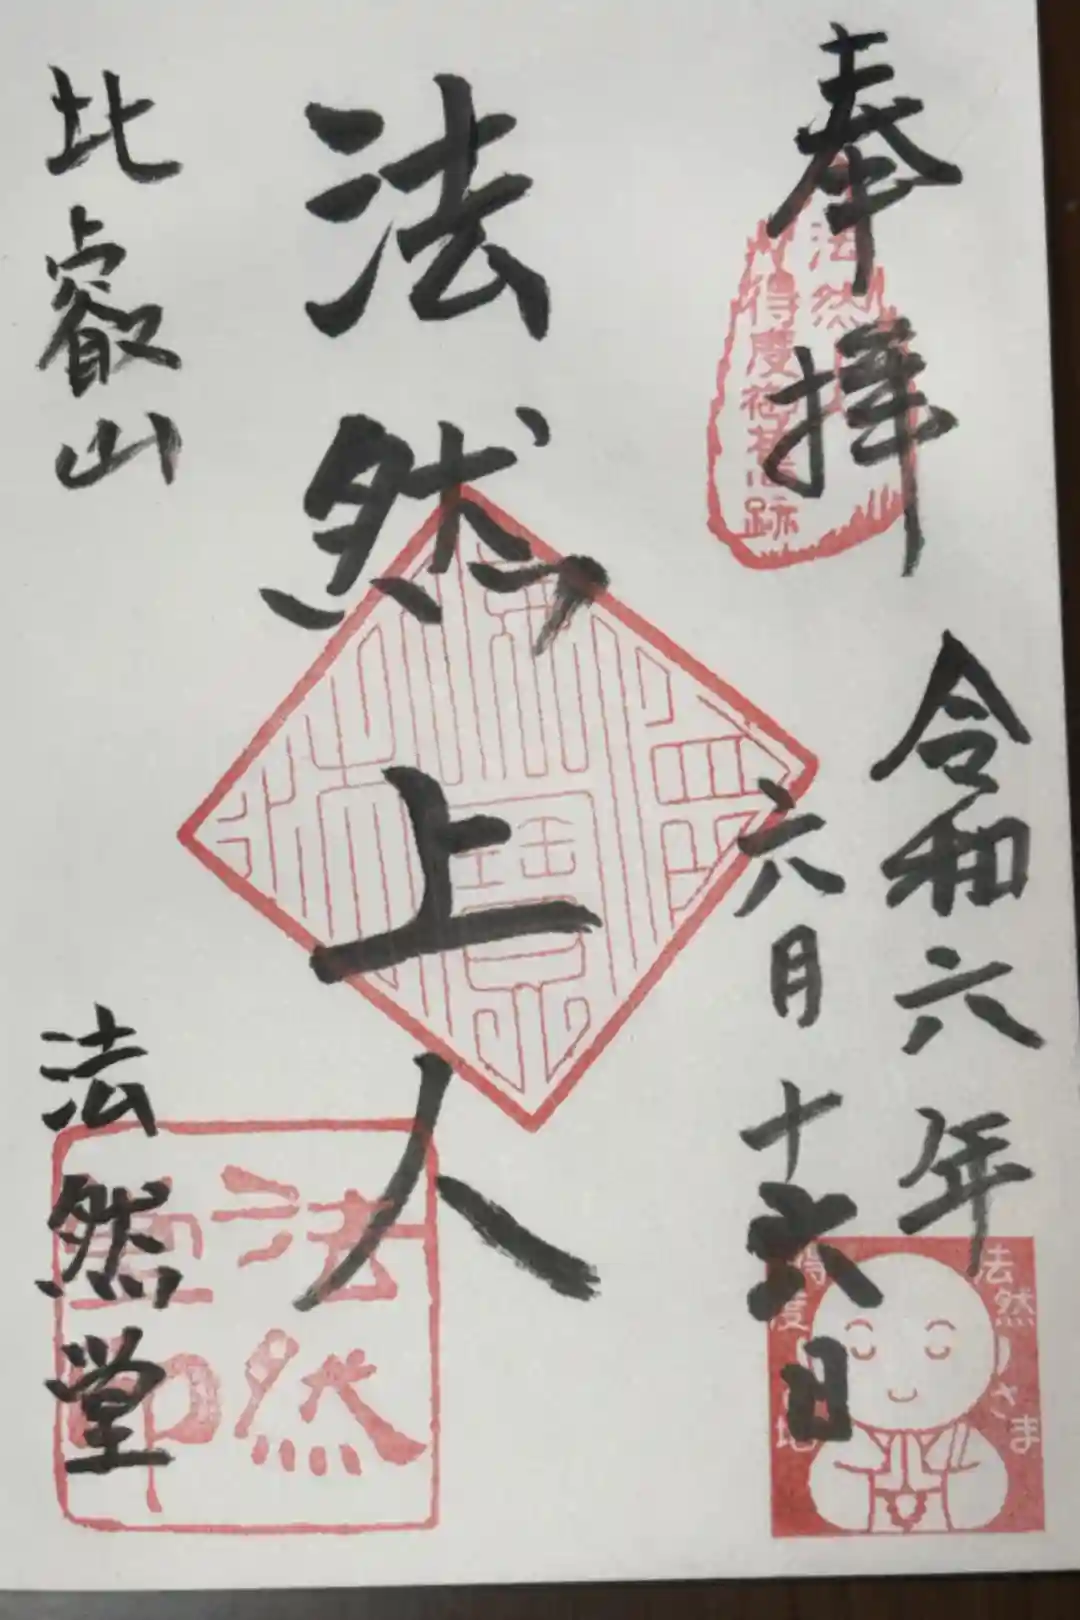 奉拝
令和六年
六月十六日
法然上人
比叡山
法然堂
法然
得度
跡
法然
法然さま
得度
地